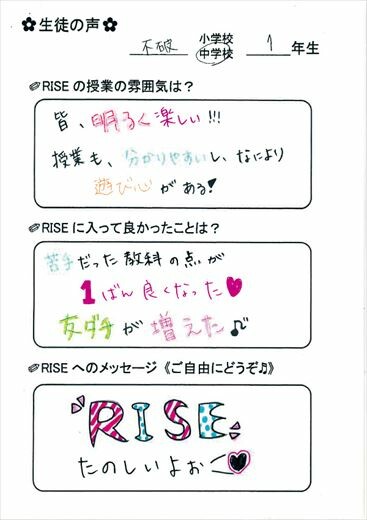 ✿生徒の声✿
不破 小学校 中学校 1年生
RISEの授業の雰囲気は？
皆、明るく楽しい!!!
授業も、分かりやすいし、なにより
遊び心がある!
RISEに入って良かったことは？
苦手だった教科の点が
1ばん良くなった♥
友ダチが増えた♪
RISEへのメッセージ《ご自由にどうぞ♫》
RISE
たのしいよぉ